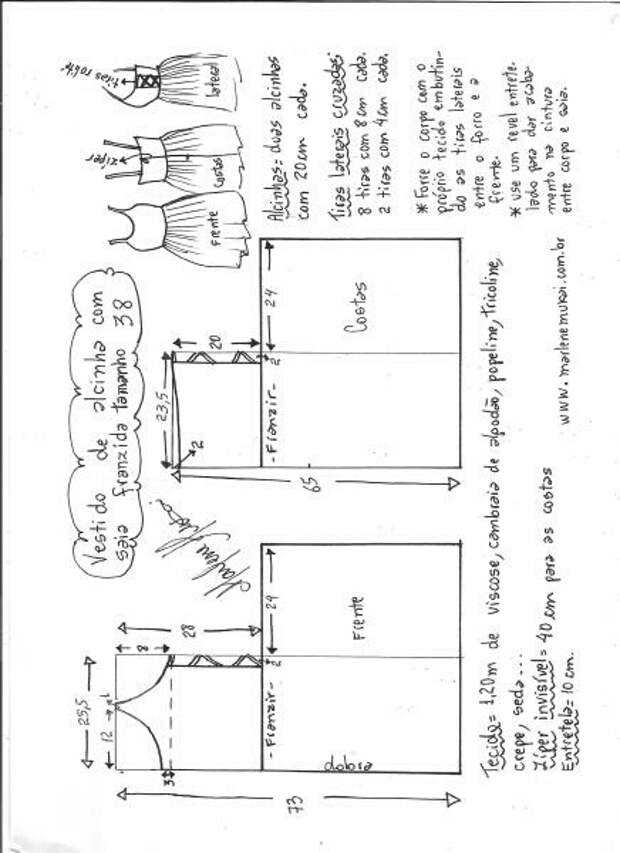 Vestido de alcinha com
saia franzida tamanho 38
tiras rolitê
Lateral
zíper
Costas
Frente
Alcinhas= duas alcinhas
com 20cm cada.
Tiras laterais cruzadas:
8 tiras com 8cm cada.
2 tiras com 4cm cada.
* Forre o corpo com o
próprio tecido embutin-
do as tiras laterais
entre o forro e a
frente.
* use um revel entrete-
lado para dar acaba-
mento na cintura
entre corpo e saia.
25,5
12
1
8
3
28
-Franzir-
2
24
Frente
dobra
73
23,5
2
20
-Franzir-
2
24
Costas
65
Tecido= 1,20m de viscose, cambraia de algodão, popeline, tricoline,
crepe, seda...
Zíper invisível= 40cm para as costas
Entretela= 10cm.
www.marlenemukai.com.br